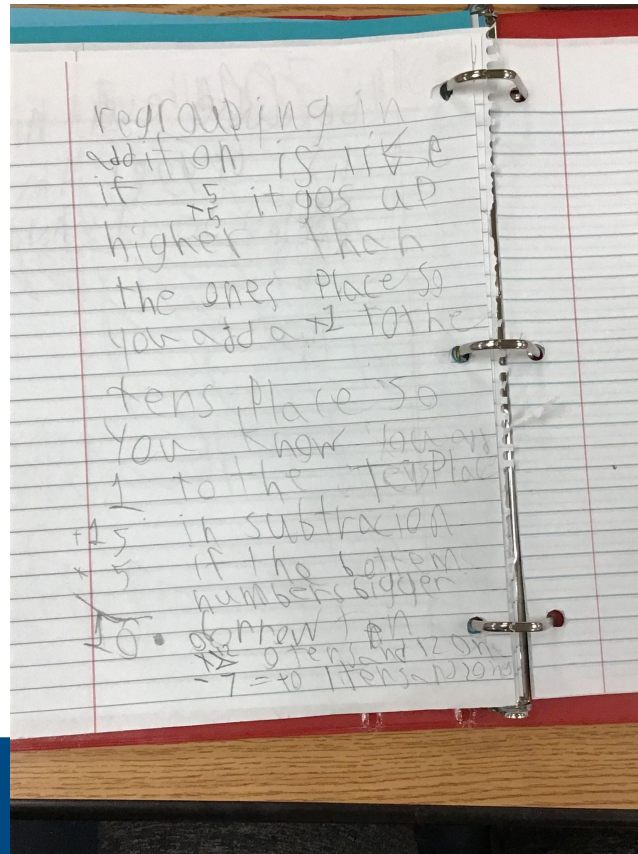 regrouping in
addition is like
if 5 +5 it gos up
higher than
the ones place so
you add a +1 to the
tens place so
you know you
1 to the tens Plac
+1 5 in subtracion
+ 5 if the bottem
numbers bigger
10 • borrow ten
12 0 tens and 12 one
- 7 = to 1 tens and 2 one